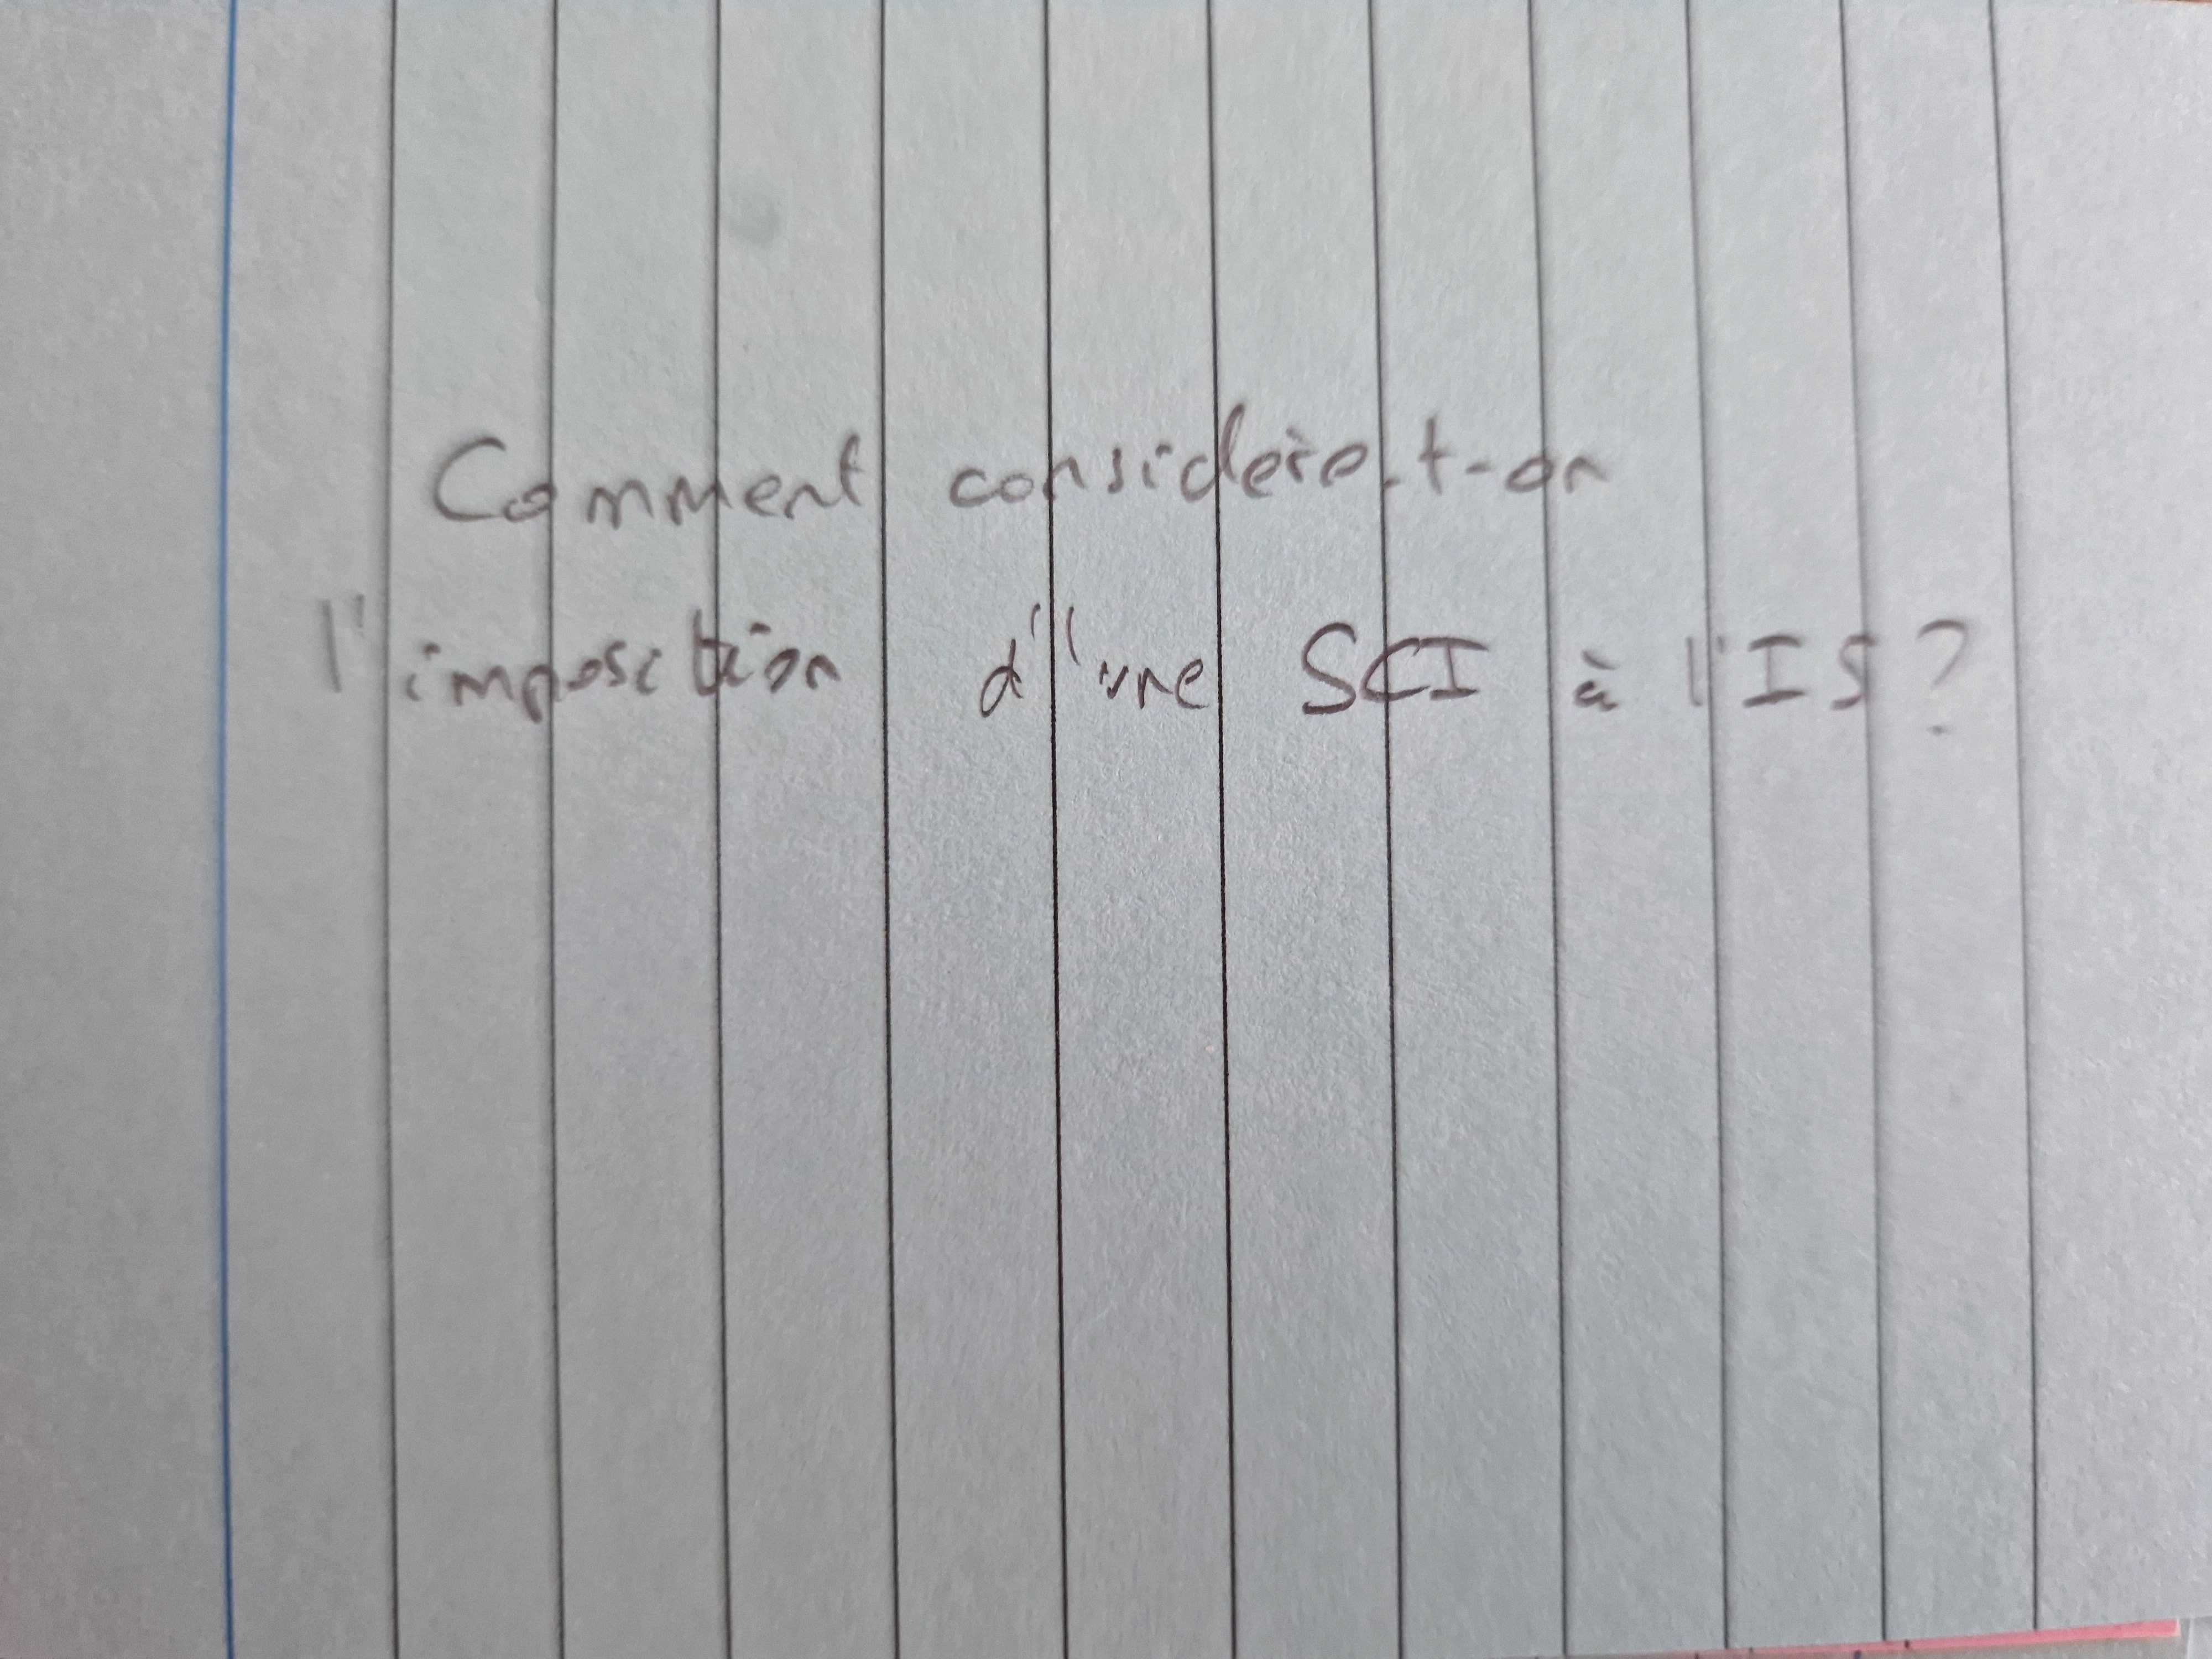 Comment considère-t-on
l'imposition d'une SCI à l'IS?